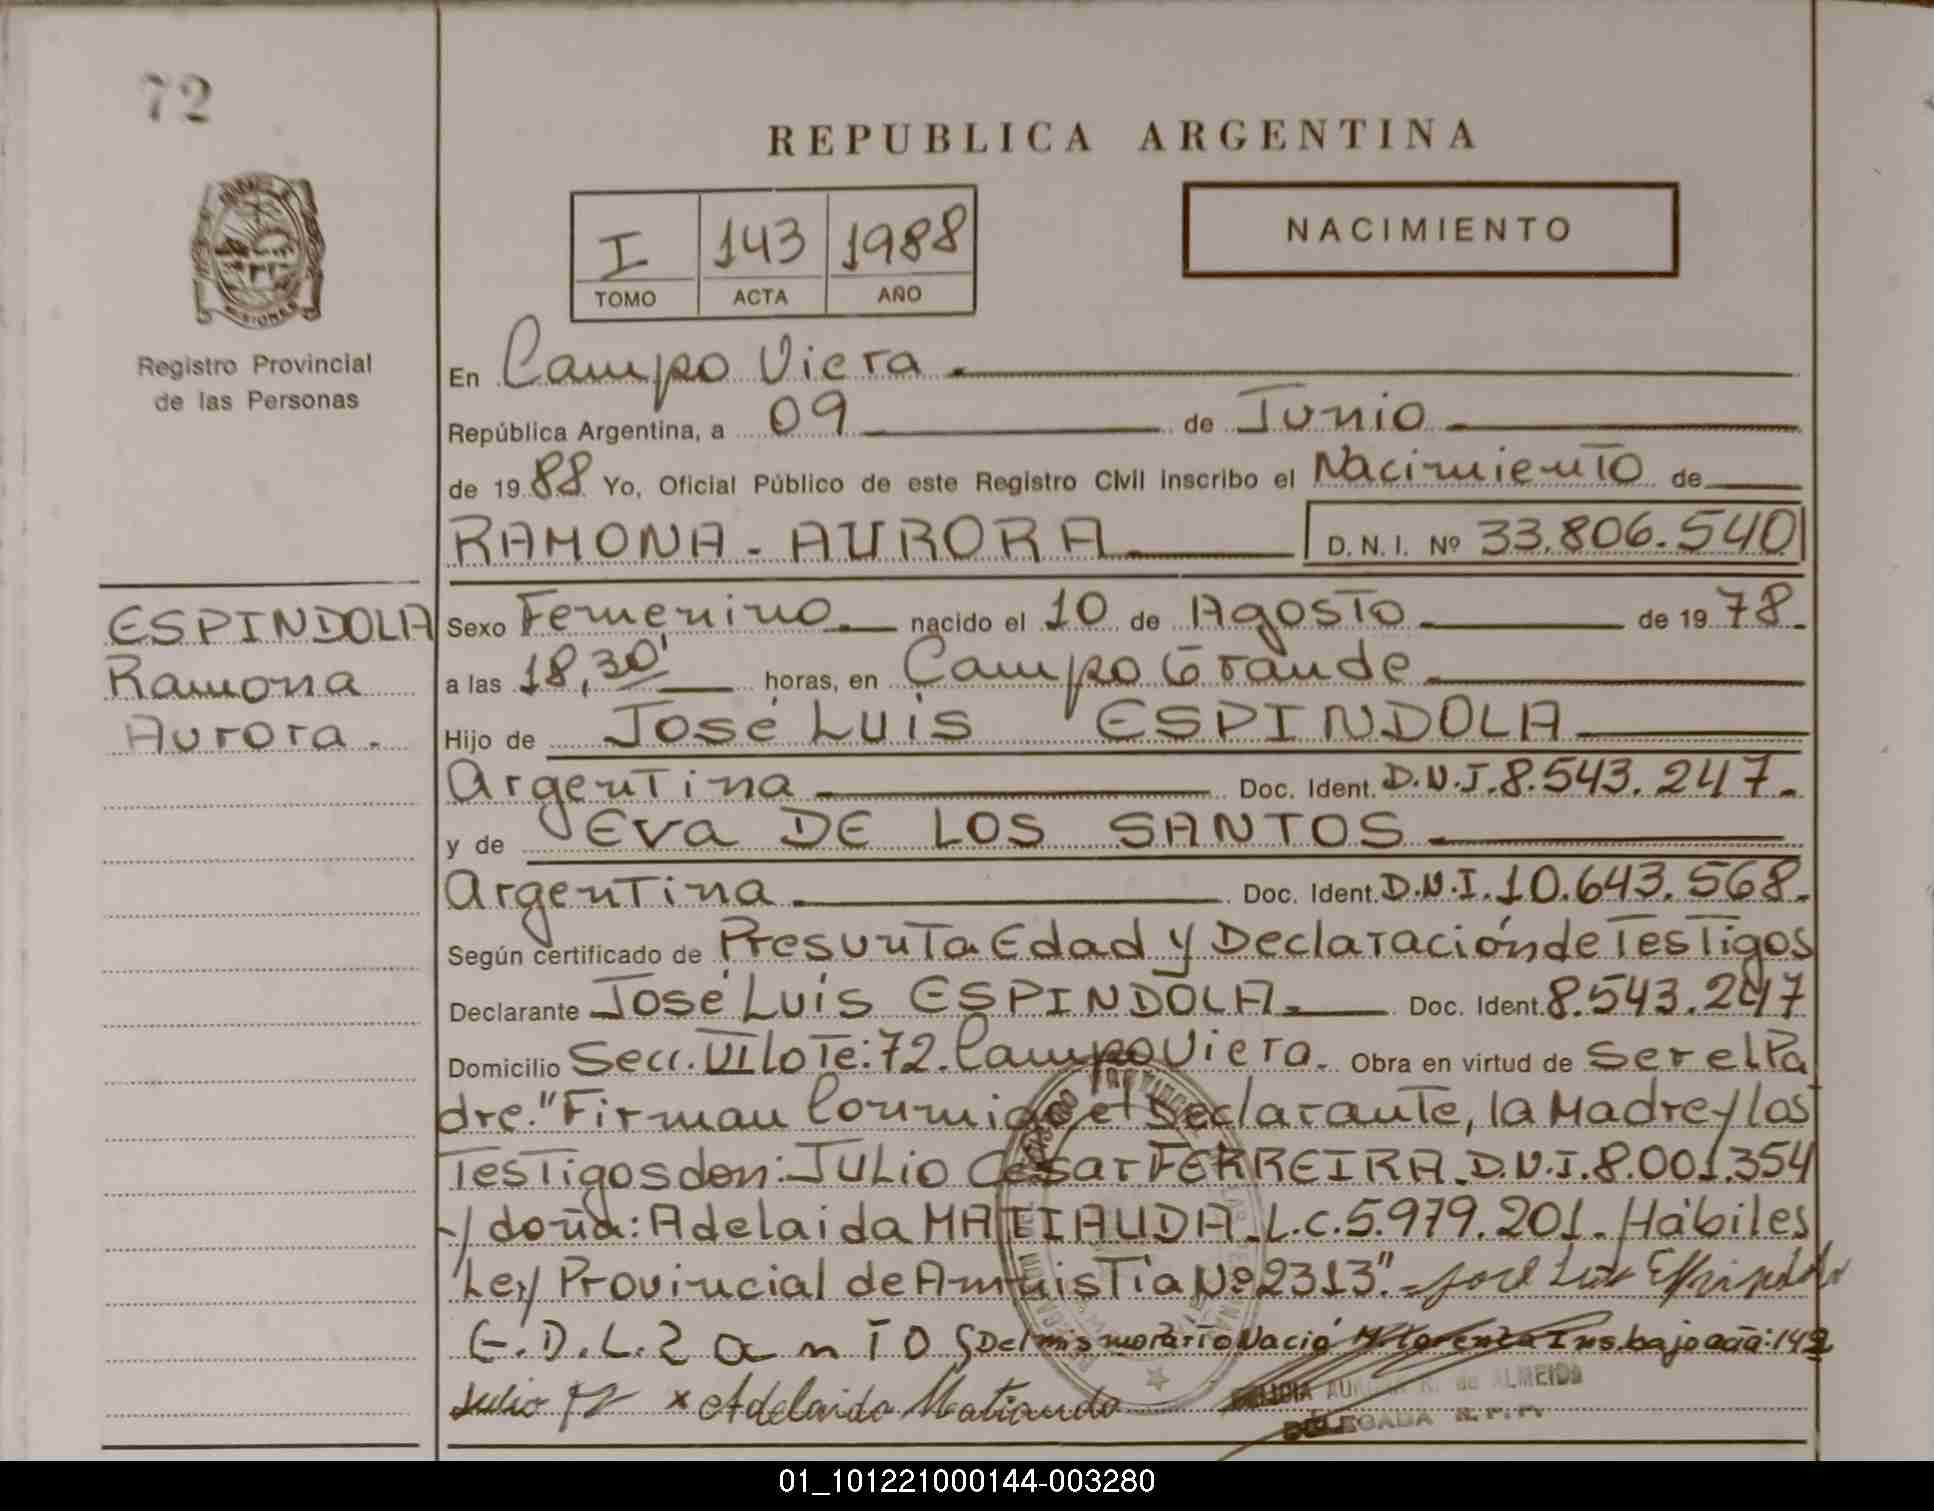 72
REPUBLICA ARGENTINA
I 143 1988
TOMO ACTA AÑO
NACIMIENTO
MISIONES
Registro Provincial
de las Personas
En Campo Viera
República Argentina, a 09 de Junio
de 1988 Yo, Oficial Público de este Registro Civil inscribo el Nacimiento de
RAMONA - AURORA D. N. I. Nº 33.806.540
ESPINDOLA
Ramona
Aurora.
Sexo Femenino nacido el 10 de Agosto de 1978.
a las 18,30' horas, en Campo Grande
Hijo de José Luis ESPINDOLA
Argentina Doc. Ident. D.N.I. 8.543.247.
y de Eva DE LOS SANTOS
Argentina Doc. Ident. D.N.I. 10.643.568.
Según certificado de Presunta Edad y Declaración de Testigos
Declarante José Luis ESPINDOLA. Doc. Ident. 8.543.247
Domicilio Secc. VI Lote: 72. Campo Viera. Obra en virtud de ser el Pa
dre." Firman Conmigo el Declarante, la Madre y los
Testigos don: Julio Cesar FERREIRA. D.N.I. 8.001.354
y doña: Adelaida MATIAUDA. L.C. 5.979.201. Hábiles
Ley Provincial de Amnistía Nº 2313". José Luis Espindola
E. D. L. Santos Del mismo Parto Nació Ins. bajo acta: 142
Julio Adelaida Matiauda
AURORA R. de ALMEIDA
DELEGADA R. P. P.
01_101221000144-003280